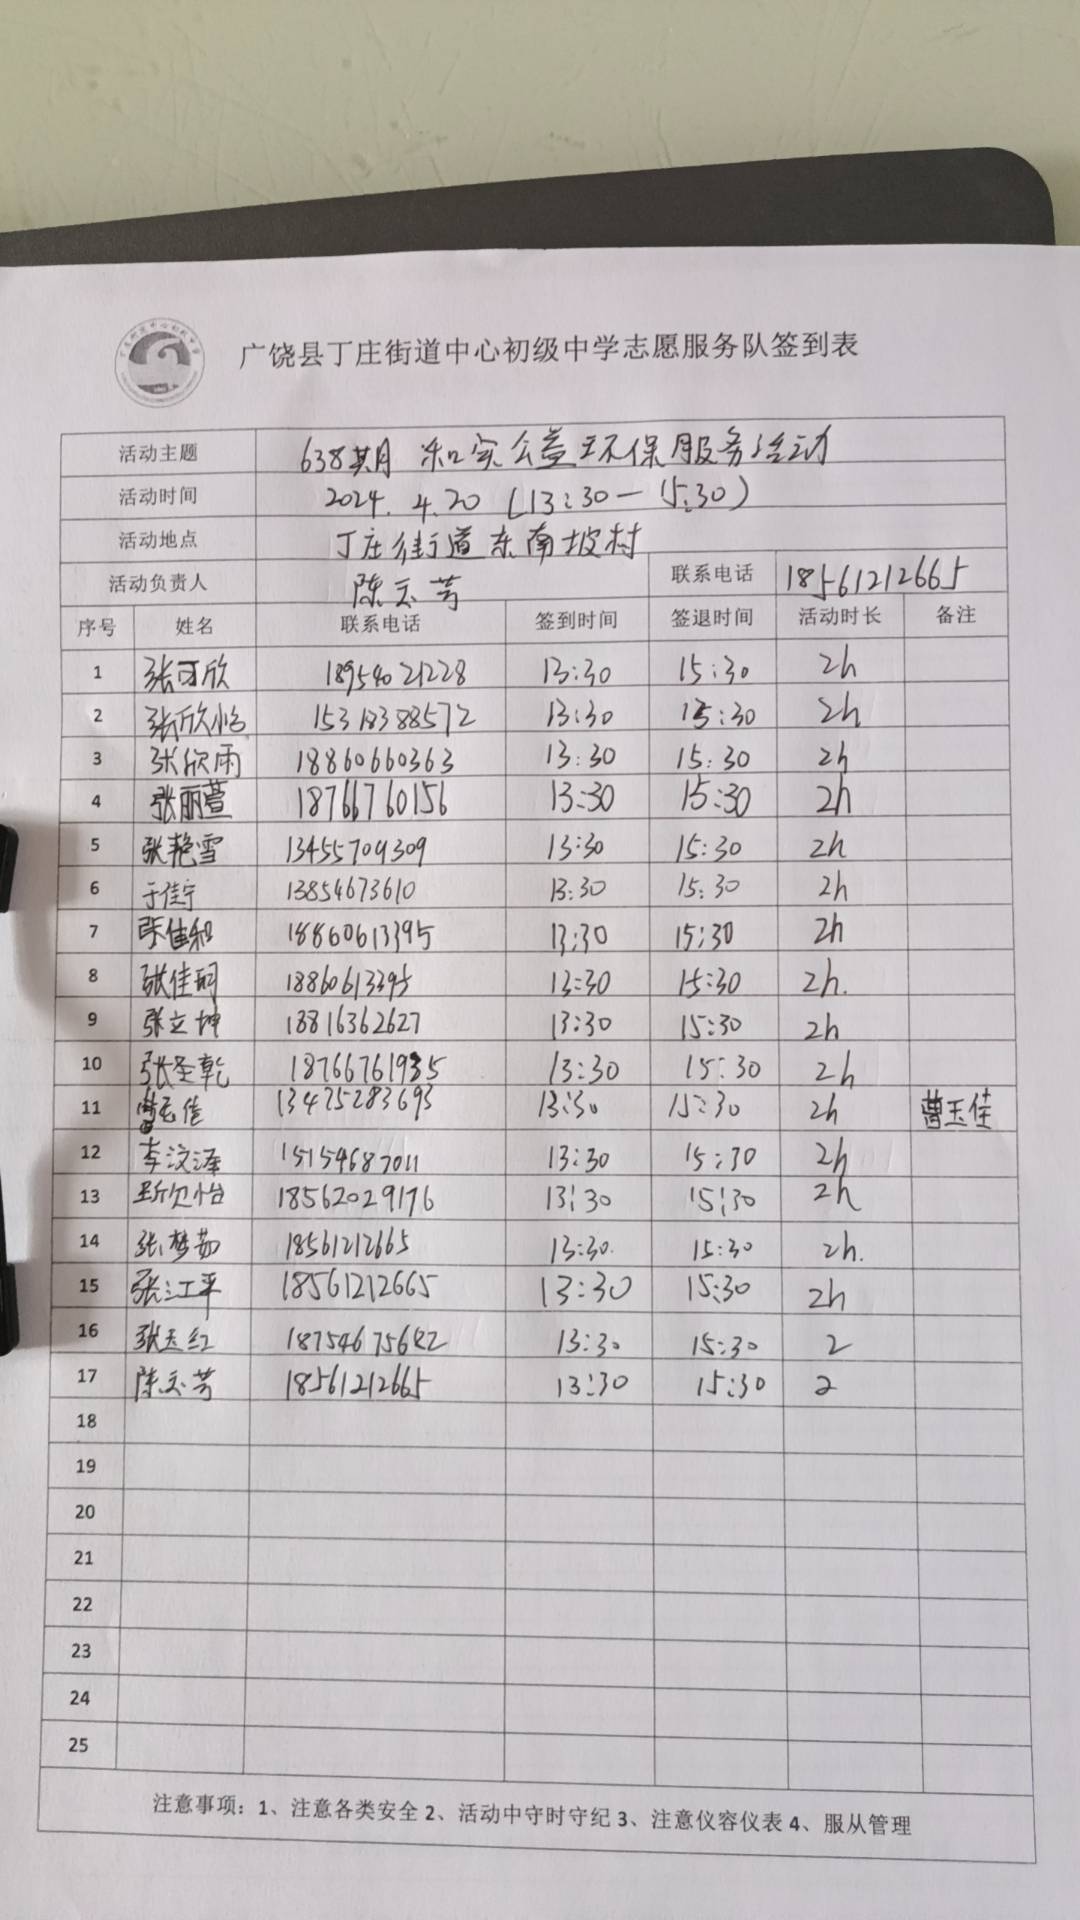 广饶县丁庄街道中心初级中学志愿服务队签到表
活动主题 638期 和实公益环保服务活动
活动时间 2024.4.20 (13:30—15:30)
活动地点 丁庄街道东南坡村
活动负责人 陈玉芳 联系电话 18561212665
序号 姓名 联系电话 签到时间 签退时间 活动时长 备注
1 张可欣 18954021228 13:30 15:30 2h
2 张欣怡 15318388572 13:30 15:30 2h
3 张欣雨 18860660363 13:30 15:30 2h
4 张丽萱 18766760156 13:30 15:30 2h
5 张艳雪 13455709309 13:30 15:30 2h
6 于佳宁 13854673610 13:30 15:30 2h
7 张佳和 18860613395 13:30 15:30 2h
8 张佳珂 18860613395 13:30 15:30 2h.
9 张立坤 18816362627 13:30 15:30 2h
10 张圣乾 18766761935 13:30 15:30 2h
11 曹玉佳 13475283693 13:30 15:30 2h 曹玉佳
12 李汶泽 15154687011 13:30 15:30 2h
13 18562029176 13:30 15:30 2h
14 张梦茹 18561212665 13:30. 15:30 2h.
15 张江平 18561212665 13:30 15:30 2h
16 张玉红 13:30 15:30 2
17 陈玉芳 18561212665 13:30 15:30 2
18
19
20
21
22
23
24
25
注意事项：1、注意各类安全 2、活动中守时守纪 3、注意仪容仪表 4、服从管理